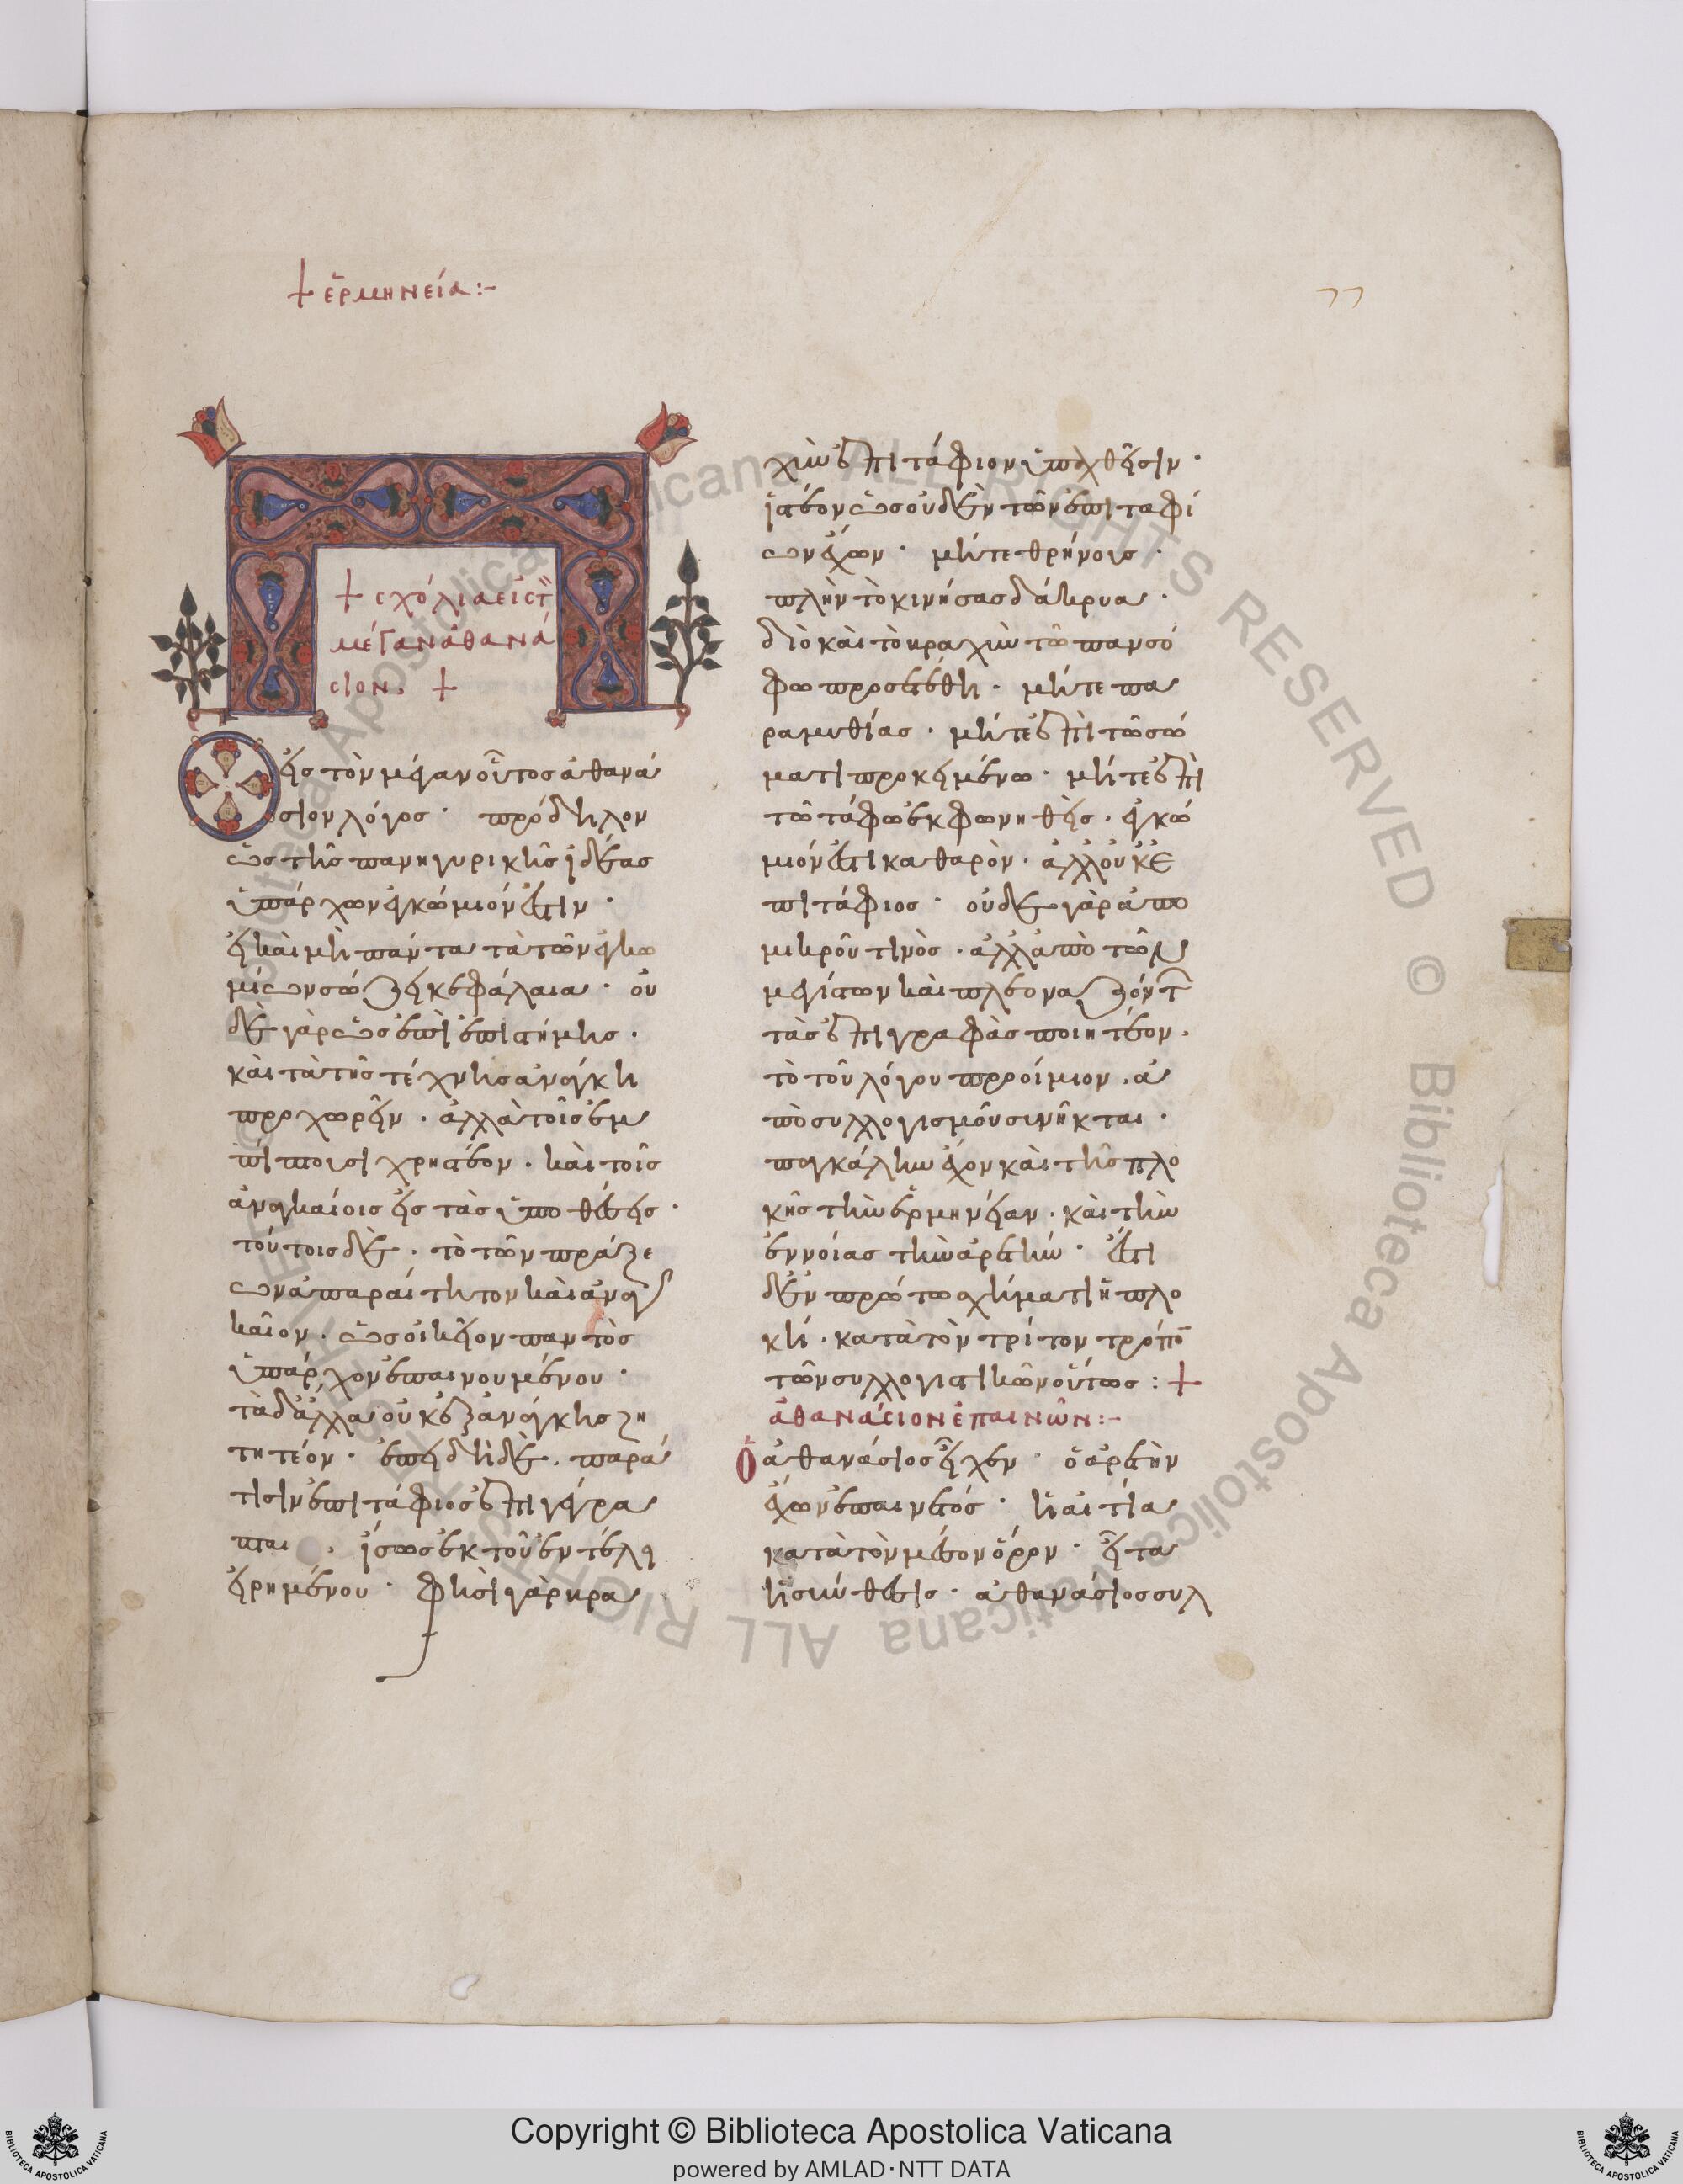 + ἑρμηνεία :-
77
+ σχόλια εἰς τ
μέγαν ἀθανά
σιον. +
Ὁ εἰς τὸν μέγαν οὗτος ἀθανά
σιον λόγος · πρόδηλον
ὡς τῆς πανηγυρικῆς ἰδέας
ὑπάρχων ἐγκώμιόν ἐστιν ·
εἰ καὶ μὴ πάντα τὰ τῶν ἐγκω
μίων σώζει κεφάλαια · οὐ
δὲ γὰρ ὡς ἐπὶ ἐπιστήμης ·
καὶ τὰ τῆς τέχνης ἀνάγκη
προχωρεῖν · ἀλλὰ τοῖς ἐμ
πίπτουσι χρηστέον · καὶ τοῖς
ἀναγκαίοις εἰς τὰς ὑποθέσεις ·
τούτοις δὲ · τὸ τῶν πράξε
ων ἀπαραίτητον καὶ ἀναγ
καῖον · ὡς οἰκεῖον παντὸς
ὑπάρχον ἐπαινουμένου ·
τὰ δ' ἄλλα οὐκ ἐξανάγκης ζη
τητέον · ἐπειδὴ δὲ · παρά
τισιν ἐπιτάφιος ἐπιγέγρα
πται · ἴσως ἐκ τοῦ ἐν τέλει
εἰρημένου · φησὶ γὰρ κρα
χὺν ἐπιτάφιον ὑποσχθεῖσιν ·
ἰστέον ὡς οὐδὲν τῶν ἐπιταφί
ων ἔχων · μήτε θρήνοις ·
πλὴν τὸ κινήσας δάκρυα ·
διὸ καὶ τὸ κραχὺν τῶ πανσό
φω προσετέθη · μήτε πα
ραμυθίας · μήτε ἐπὶ τῶ σώ
ματι προκειμένω · μήτε ἐπὶ
τῶ τάφω ἐκφωνηθεὶς · ἐγκώ
μιόν ἐστι καθαρὸν · ἀλλ' οὐκ ἐ
πιτάφιος · οὐδὲ γὰρ ἀπὸ
μικροῦ τινὸς · ἀλλ' ἀπὸ τῶν
μεγίστων καὶ πλεοναζόντ
τὰς ἐπιγραφὰς ποιητέον ·
τὸ τοῦ λόγου προοίμιον · ἀ
πὸ συλλογισμοῦ συνῆκται ·
παγκάλην ἔχον καὶ τῆς πλο
κῆς τὴν ἑρμηνείαν · καὶ τὴν
ἐννοίας τὴν ἀρετήν · ἔστι
δ' ἐν πρώτω σχήματι ἡ πλο
κή · κατὰ τὸν τρίτον τρόπο
τῶν συλλογιστικῶν οὕτως : +
ἀθανάσιον ἐπαινῶν :-
Ὁ ἀθανάσιος εἶχεν · ὁ ἀρετὴν
ἔχων ἐπαινετός · ἡ αἰτία
κατὰ τὸν μέσον ὅρον · εἶτα
ἡ σύνθεσις · ἀθανάσιος συλ
Copyright © Biblioteca Apostolica Vaticana
powered by AMLAD・NTT DATA